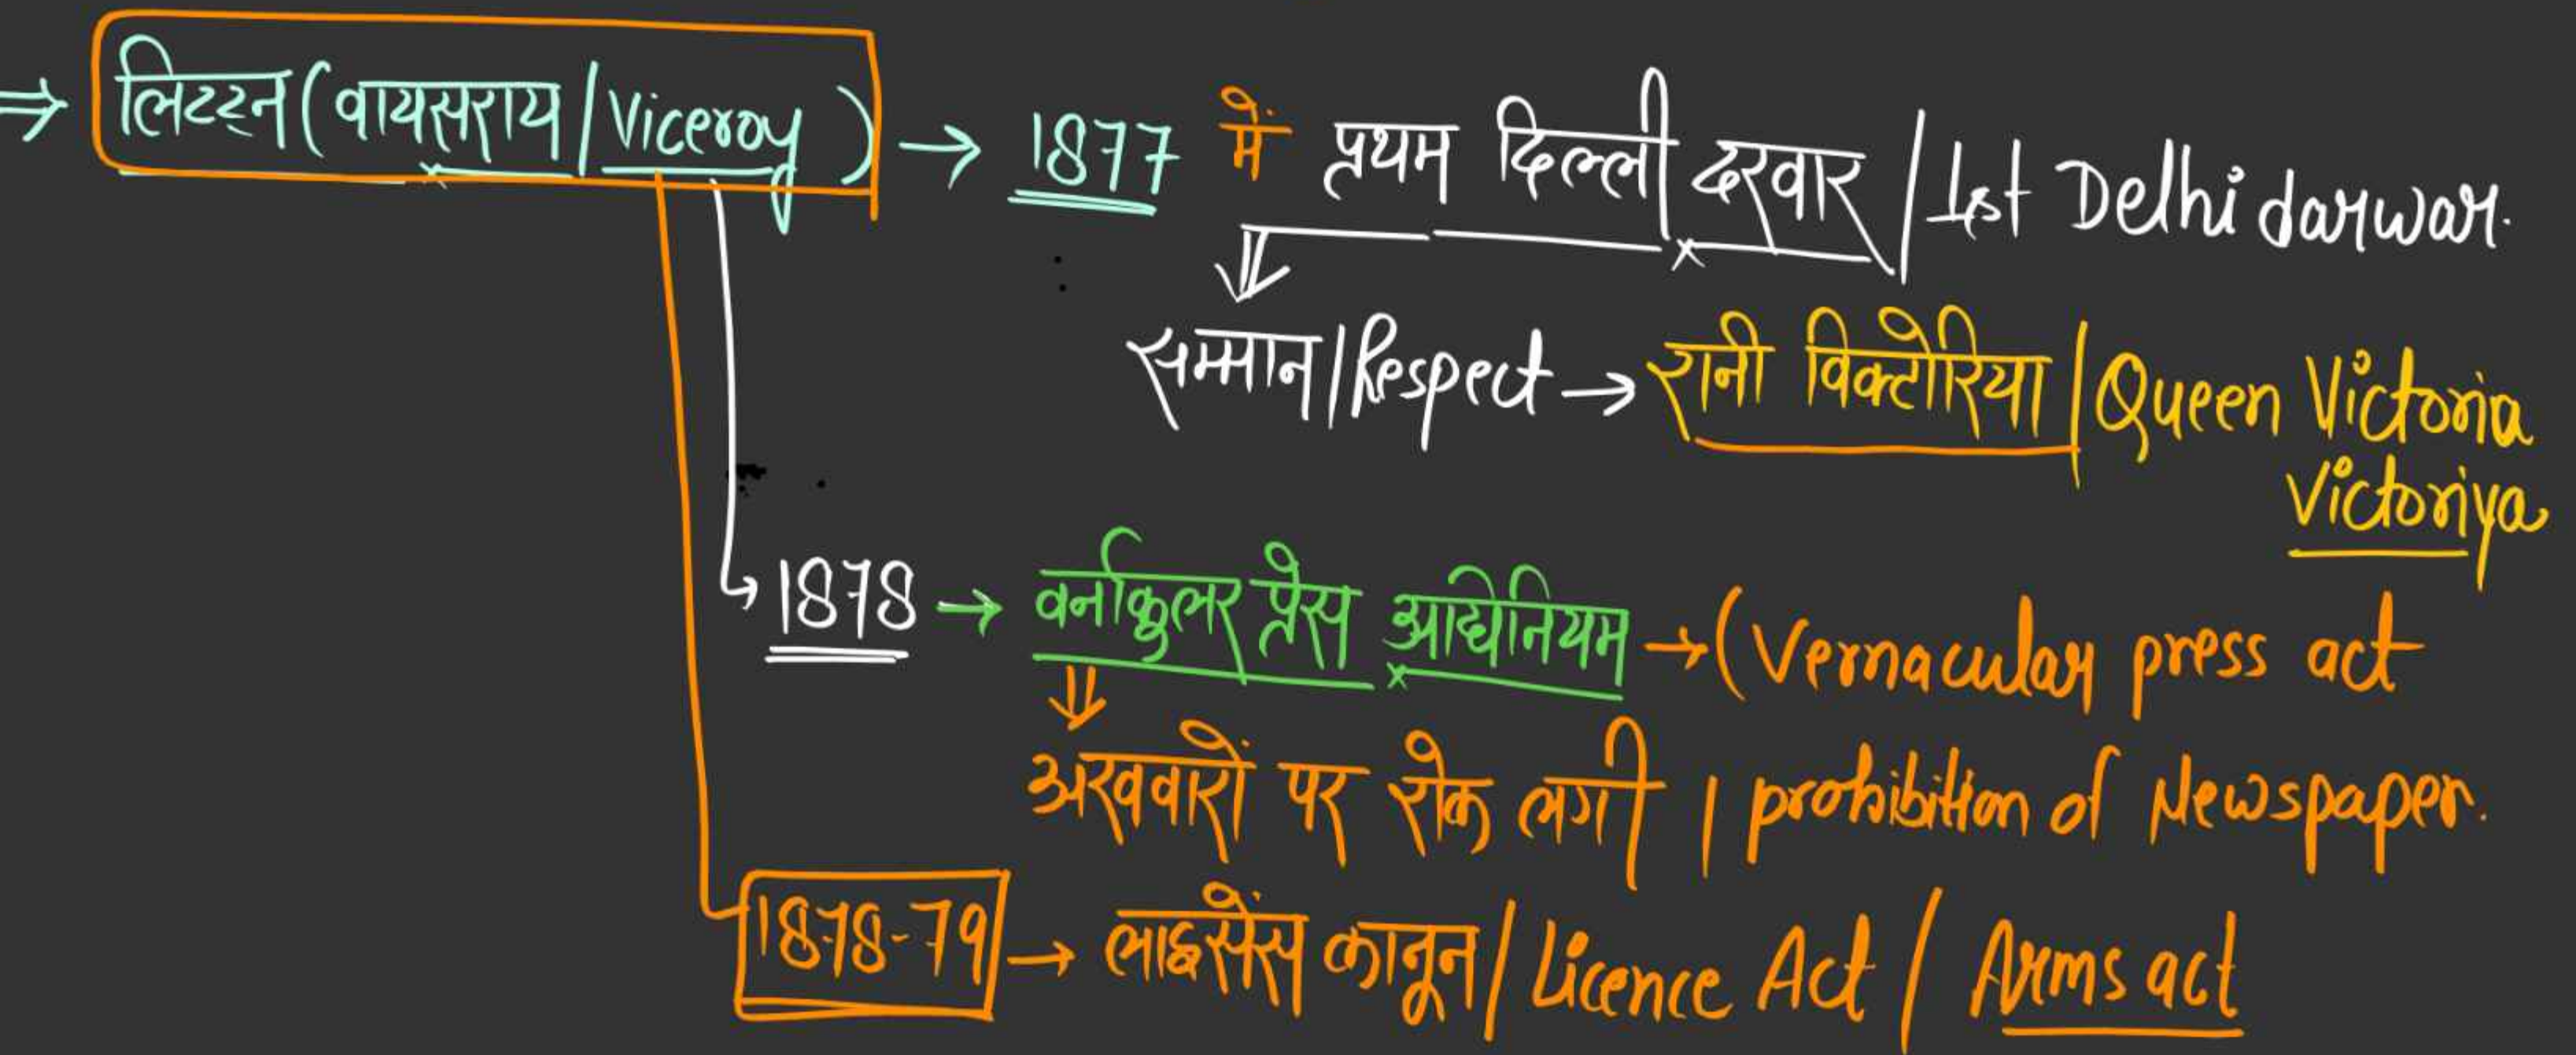 ⇒ लिटट्न (वायसराय / Viceroy) → 1877 में प्रथम दिल्ली दरवार / 1st Delhi darwar.
सम्मान / Respect → रानी विक्टोरिया / Queen Victoria
Victoriya
1878 → वर्नाकुलर प्रेस अधिनियम → (Vernacular press act
अखवारों पर रोक लगी / prohibition of Newspaper.
1878-79 → लाइसेंस कानून / Licence Act / Arms act